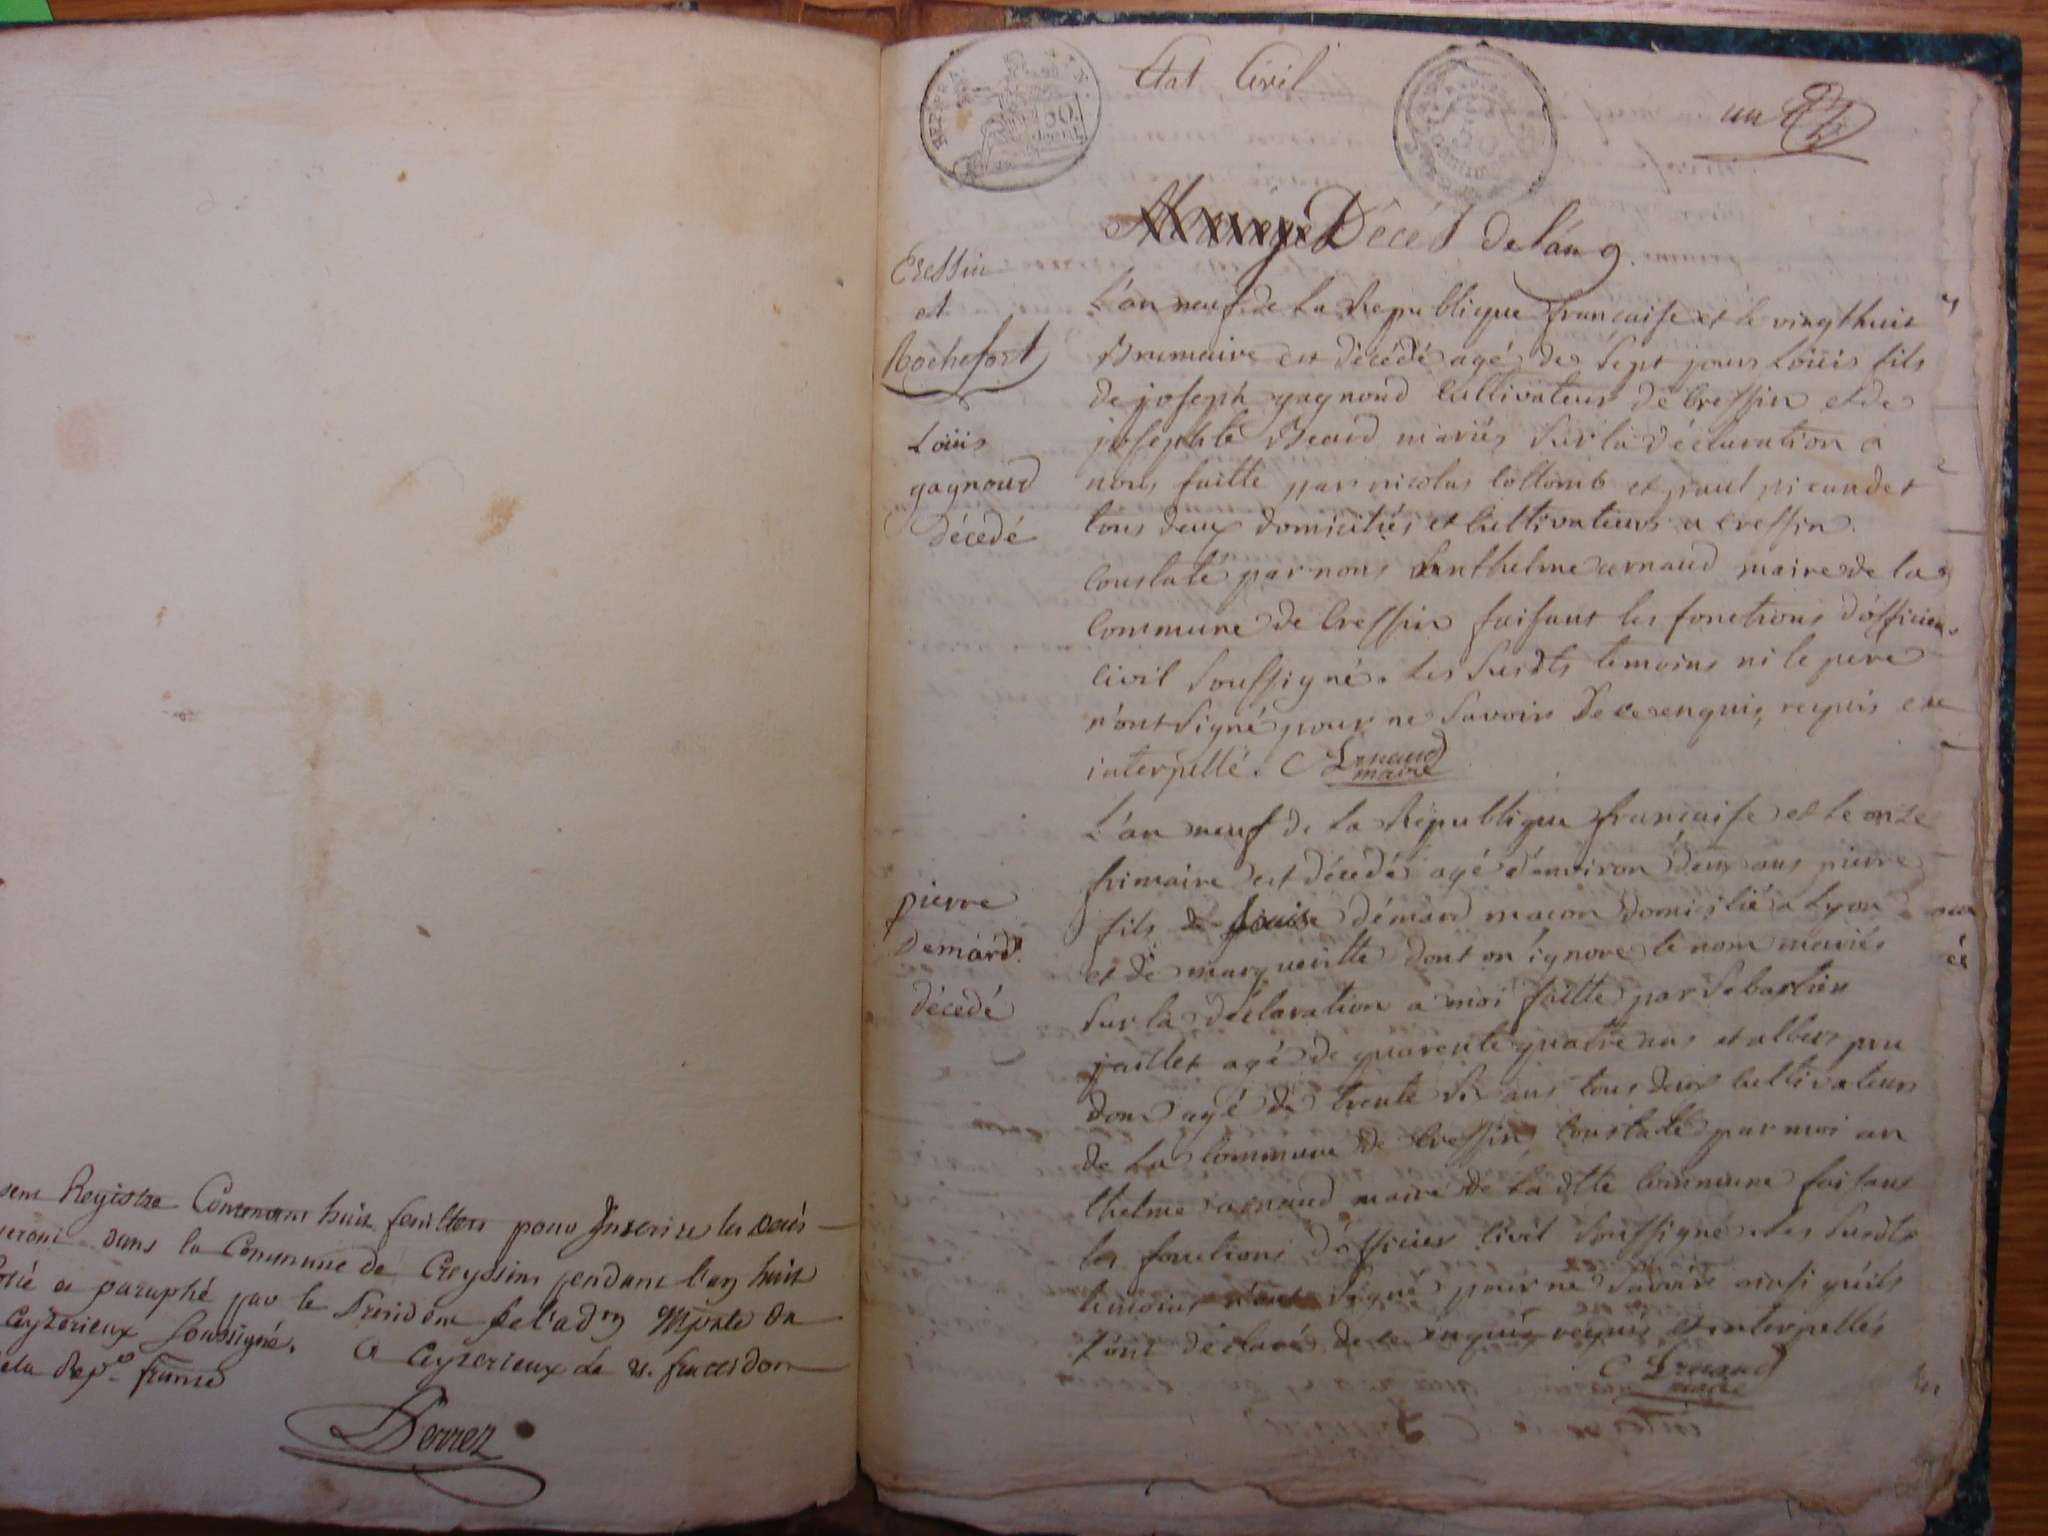 Registre Contenant huit feuillets pour Inscrire les décès
dans la Commune de Creyssin pendant l'an huit
et paraphé par le President de l'adm mpale de
Ceyzerieux Soussigné. a Ceyzerieux le 21. fructidor
de la Rep. franse
Perret
REP. FRA.
Etat Civil
un
Mariage Décés de l'an 9.
Cressin
et
Rochefort
Loüis
gagnoud
décedé
L'an neuf de la Republique francaise et le vingt huit
Brumaire est décédé agé de sept jours Loüis fils
de joseph gagnoud cultivateur de Cressin et de
josephte Beard mariés sur la déclaration a
nous faitte par nicolas Collomb et paul picaudet
tous deux domiciliés et cultivateurs a cressin.
Constaté par nous anthelme arnaud maire de la
Commune de Cressin faisant les fonctions d'officier
civil soussigné. Les susdts temoins ni le pere
n'ont signé pour ne savoir de ce enquis, requis et
interpellé. C Arnaud
maire
pierre
Demard
décedé
L'an neuf de la République francaise et le onze
frimaire est décédé agé d'environ deux ans pierre
fils de Louis démard macon domicilié a Lyon
et de margueritte dont on ignore le nom mariés
sur la déclaration a moi faitte par sebastien
jaillet agé de quarente quatre ans et albert pru
dom agé de trente six ans tous deux cultivateurs
de la commune de Cressin, constaté par moi an
thelme arnaud maire de la dtte commune faisant
les fonctions d'officier civil soussigné. Les susdts
temoins n'ont signé pour ne savoir ainsi qu'ils
l'ont déclaré de ce enquis requis et interpellés
C Arnaud
maire